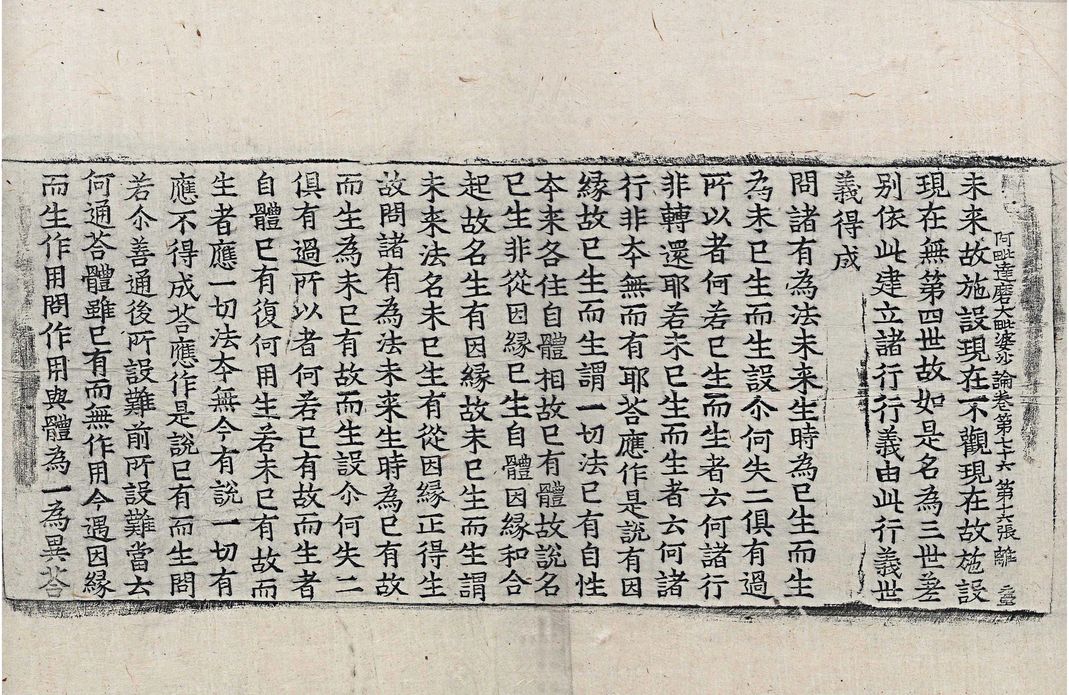 阿毗達磨大毗婆沙論卷第七十六 第十六張 離
未来故施設現在不觀現在故施設
現在無第四世故如是名為三世差
別依此建立諸行行義由此行義世
義得成
問諸有為法未来生時為已生而生
為未已生而生設尒何失二俱有過
所以者何若已生而生者云何諸行
非轉還耶若未已生而生者云何諸
行非夲無而有耶荅應作是說有因
緣故已生而生謂一切法已有自性
夲来各住自體相故已有體故說名
已生非從因緣已生自體因緣和合
起故名生有因緣故未已生而生謂
未来法名未已生有從因緣正得生
故問諸有為法未来生時為已有故
而生為未已有故而生設尒何失二
俱有過所以者何若已有故而生者
自體已有復何用生若未已有故而
生者應一切法夲無今有說一切有
應不得成荅應作是說已有而生問
若尒善通後所設難前所設難當云
何通荅體雖已有而無作用今遇因緣
而生作用問作用與體為一為異荅